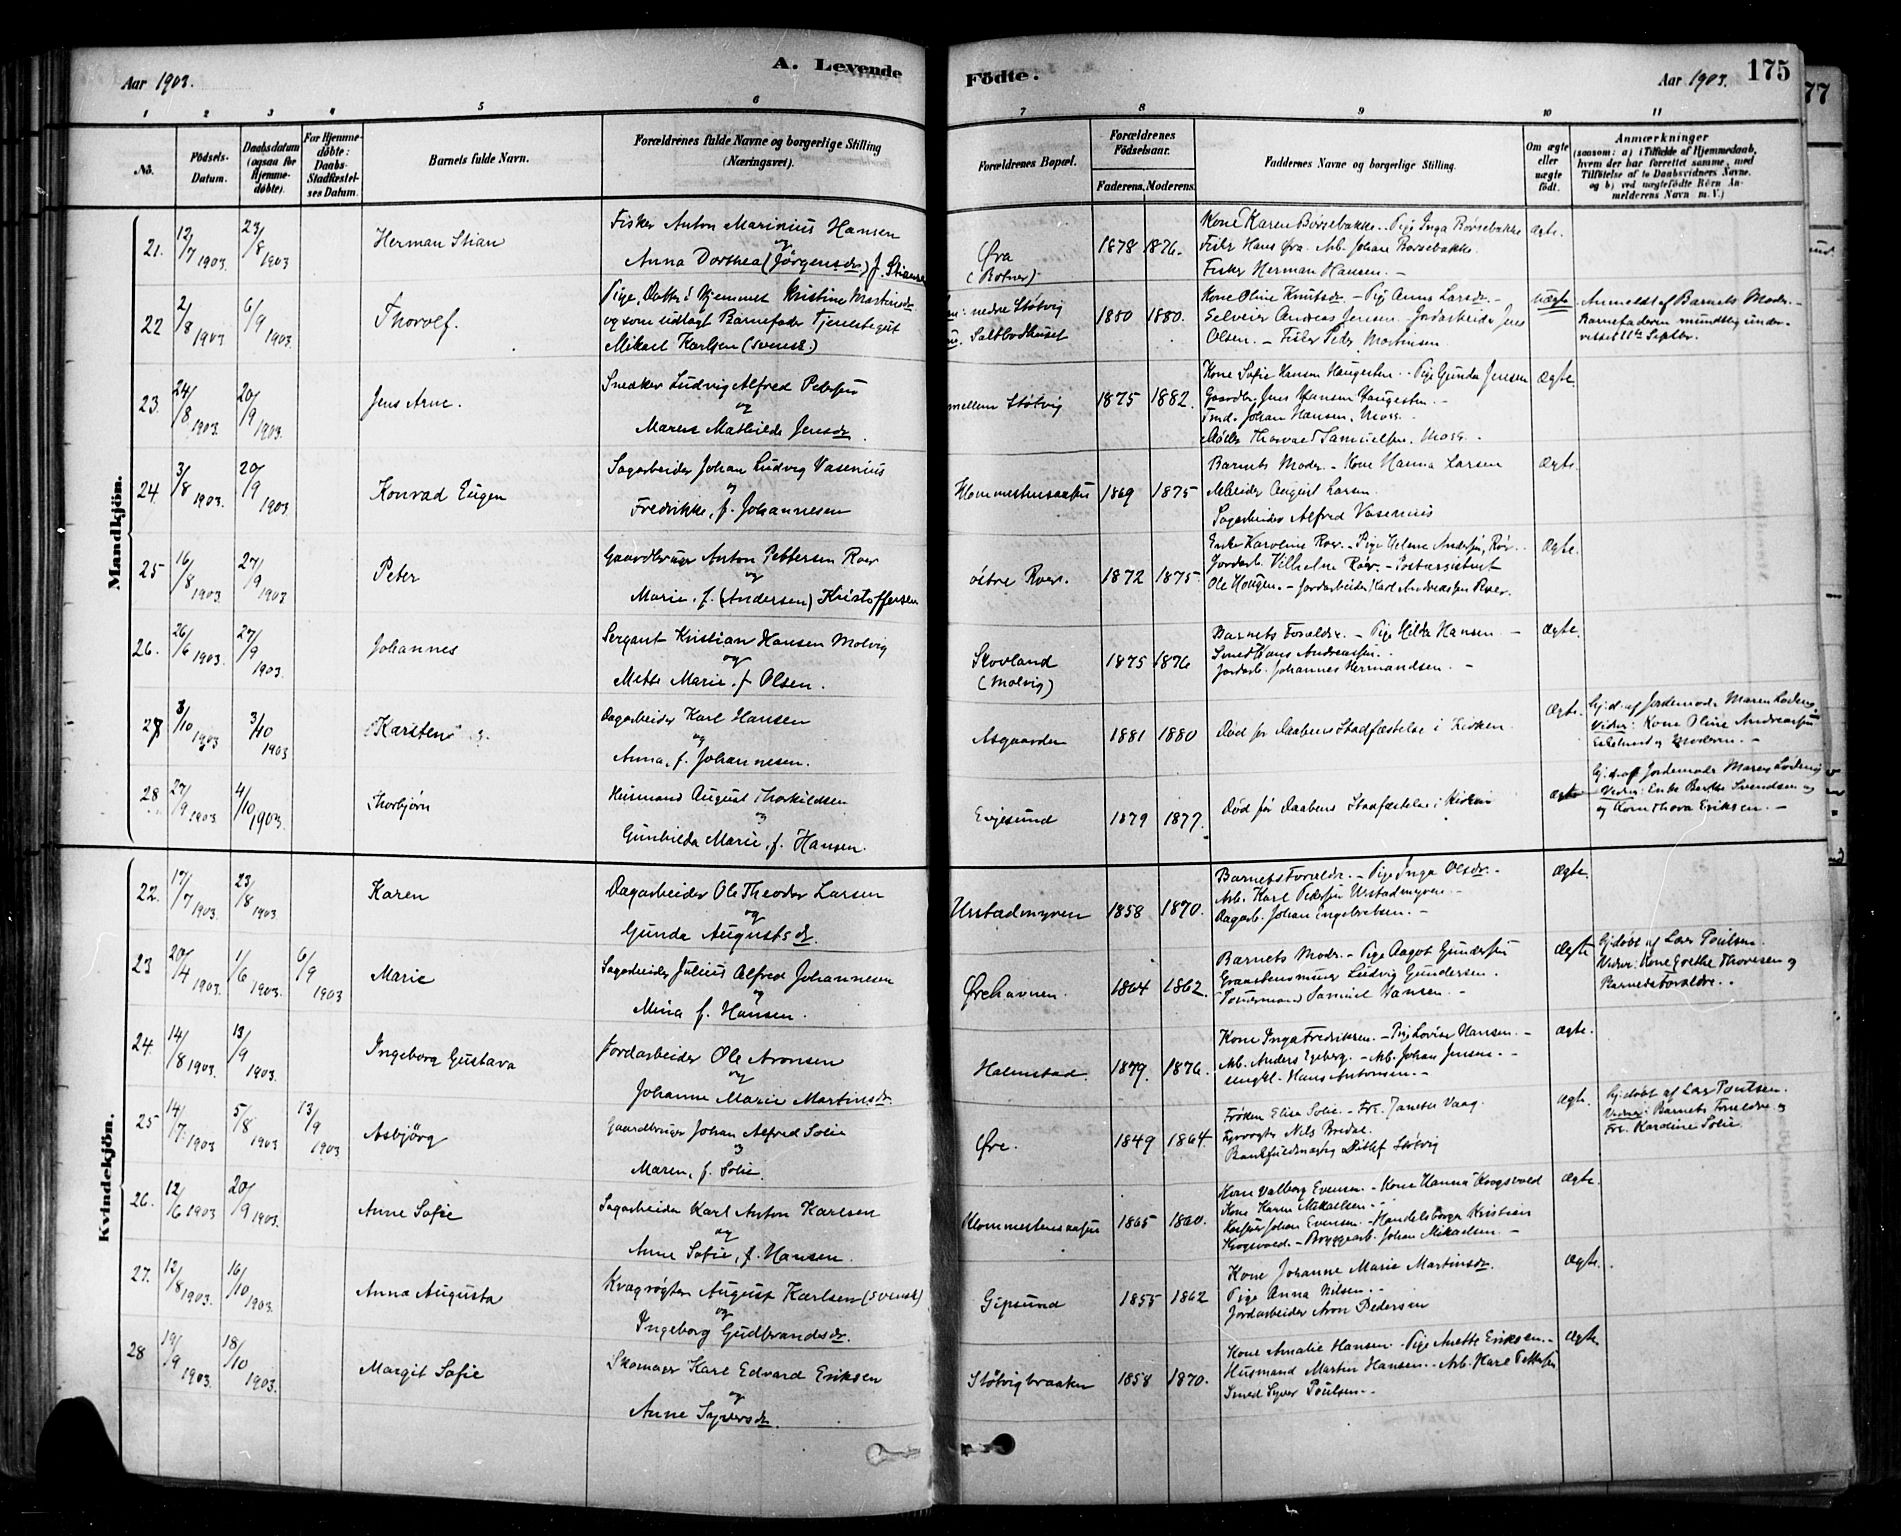 Aar 1903.
A. Levende
Födte.
Aar 1903.
175
77
1 2 3 4 5 6 7 8 9 10 11
No.
Födsels-Datum.
Daabsdatum (ogsaa for Hjemmedøbte).
For Hjemmedøbte: Daabs-Stadfæstelses Datum.
Barnets fulde Navn.
Forældrenes fulde Navne og borgerlige Stilling (Næringsvei).
Forældrenes Bopæl.
Forældrenes Födselsaar.
Faderens. Moderens.
Faddernes Navne og borgerlige Stilling.
Om ægte eller uægte födt.
Anmærkninger
(saasom: a) i Tilfælde af Hjemmedaab, hvem der har forrettet samme, med Tilföielse af to Daabsvidners Navne, og b) ved uægtefödte Börn Anmelderens Navn m. V.)
Mandkjön.
21. 12/7 1903. 23/8 1903 Herman Stian
Fisker Anton Marinius Hansen
og
Anna Dorthea (Jörgensdr)
Øra
(Botner)
1878 1876.
Kone Karen Børsebakke. Pige Inga Børsebakke
Fisker Hans Øra. Arb. Johan Børsebakke
Fisker Herman Hansen. -
Ægte.
22 2/8 1903 6/9 1903. Thorolf.
Pige, Datter i Hjemmet Kristine Martinsdr
og som udlagt Barnefader Tjenestegut
Mikael Karlsen (svensk.)
nedre Støtvig
Saltbodhuset
1880 1880.
Kone Oline Knutsdr - Pige Anna Larsdr -
Selveier Andreas Jensen. Jordarbeider Jens
Olsen. - Fisker Peder Mortensen.
Uægte
Anmeldt af Barnets Moder. -
Barnefaderen mundtlig under-
rettet 11te Septbr.
23. 24/8 1903. 20/9 1903. Jens Arne.
Snedker Ludvig Alfred Petersen
og
Maren Mathilde Jensdr.
mellem Støtvig
1875 1882.
Kone Sofie Hansen Haugesten. - Pige Gunda Jensen
Gaardbr. Jens Hansen Haugesten. -
Johan Hansen, Moss.
Thorvald Samuelsen, Moss.
Ægte.
24 3/8 1903. 20/9 1903 Konrad Eugen
Sagarbeider Johan Ludvig Vasenius
og
Fredrikke, f. Johannesen
1869 1875
Barnets Moder. - Kone Hanna Larsen
Arbeider August Larsen.
Sagarbeider Alfred Vasenius
Ægte.
25 16/8 1903. 27/9 1903 Peter
Gaardbruger Anton Pettersen Roer
og
Marie, f. (Andersen) Kristoffersen
östre Roer.
1872 1875.
Enke Karoline Roer. - Pige Helene Andersen, Roer.
Jordarb. Vilhelm Roer. - Postassistent
Ole Haugen. - Jordarbeider Karl Andreassen Roer.
Ægte.
26. 26/6 1903. 27/9 1903. Johannes
Sergant Kristian Hansen Molvig
og
Mette Marie, f. Olsen.
Skovland
(Molvig)
1875 1876
Barnets Forældre. - Pige Hilda Hansen. -
Smed Hans Andreassen. -
Jordarb. Johannes Hermandsen. -
Ægte.
27 3/10 1903 3/10 1903 Karsten
Dagarbeider Karl Hansen
og
Anna, f. Johannesen.
Asgaarden
1881 1880
Död før Daabens Stadfæstelse i Kirken
Ægte.
Hj. d. af Jordemoder Maren
Vidner: Kone Oline Andreassen
og Moderen. -
28 27/9 1903 4/10 1903. Thorbjørn
Husmand August Thorkildsen
og
Gunhilda Marie, f. Hansen.
Evjesund
1879 1877.
Død før Daabens Stadfæstelse i Kirken
Ægte
Hj. d. af Jordemoder Maren
Vidner: Enke Berthe Svendsen og
og Kone Thora Eriksen. -
Kvindekjön.
22. 17/7 1903. 23/8 1903. Karen
Dagarbeider Ole Theodor Larsen
og
Gunda Augustsdr.
Urstadmyren
1858 1870.
Barnets Forældre. - Pige Inga Olsdr. -
Arb. Karl Pedersen Urstadmyren. -
Dagarb. Johan Engebretsen. -
Ægte.
23 20/4 1903. 1/6 1903. 6/9 1903 Marie
Sagarbeider Julius Alfred Johannesen
og
Mina f. Hansen.
Ørehavnen.
1864 1862.
Barnets Moder. - Pige Aagot Gundersen
Graastensmurer Ludvig Gundersen.
Tømmermand Samuel Hansen. -
Ægte
Hj. døbt af Lars Poulsen.
Vidner: Kone Grethe Thoresen og
Barnets Forældre.
24. 14/8 1903. 13/9 1903. Ingeborg Gustava
Jordarbeider Ole Aronsen
og
Johanne Marie Martinsdr.
Halmstad.
1879. 1876.
Kone Inga Fredriksen. - Pige Lovise Hansen. -
Arb. Anders Egeberg. - Arb. Johan Jensen. -
Ungkl. Hans Antonsen. -
Ægte.
25 14/7 1903 5/8 1903 13/9 1903 Asbjörg
Gaardbruger Johan Alfred Solie
og
Maren, f. Solie.
Øre.
1849 1864
Frøken Elise Solie. - Frk. Janette Vaag.
Fyrvogter Nils Bredal.
Ditlef Støtvig
Ægte.
Hj. døbt af Lars Poulsen.
Vidner: Barnets Forældre og
Frk. Kardine Solie.
26. 12/6 1903 20/9 1903. Anne Sofie
Sagarbeider Karl Anton Karlsen
og
Anne Sofie, f. Hansen.
1865 1860.
Kone Valborg Evensen. - Kone Hanna Krogsvold
Kone Karen Mikaelsen. -
Johan Evensen. - Handelsborger Kristian
Krogsvold. - Bryggearb. Johan Mikaelsen. -
Ægte.
27. 12/8 1903. 16/10 1903. Anna Augusta
Kvægrøgter August Karlsen (svensk)
og
Ingeborg Gudbrandsdr.
Gipsund
1855 1862
Kone Johanne Marie Martinsdr.
Pige Anna Nilsen. -
Jordarbeider Aron Pedersen
Ægte.
28 19/9 1903. 18/10 1903. Margit Sofie
Skomager Karl Edvard Eriksen
og
Anne Syversdr.
Støtvigbraaten
1858 1870.
Kone Amalie Hansen. - Pige Anette Eriksen. -
Husmand Martin Hansen. - Arb. Karl Pettersen
Smed Syver Poulsen. -
Ægte